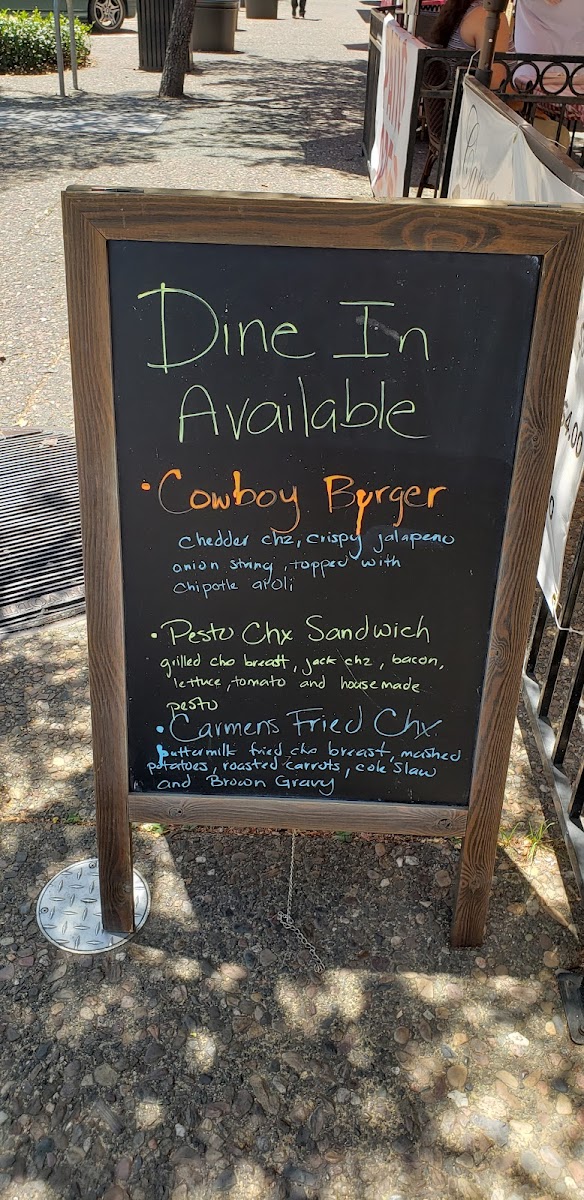 Dine In
Available
• Cowboy Burger
chedder chz, crispy jalapeno
onion string, topped with
chipotle aioli
• Pesto Chx Sandwich
grilled chx breast, jack chz, bacon,
lettuce, tomato and housemade
pesto
• Carmens Fried Chx
buttermilk fried chx breast, mashed
potatoes, roasted carrots, cole slaw
and Brown Gravy